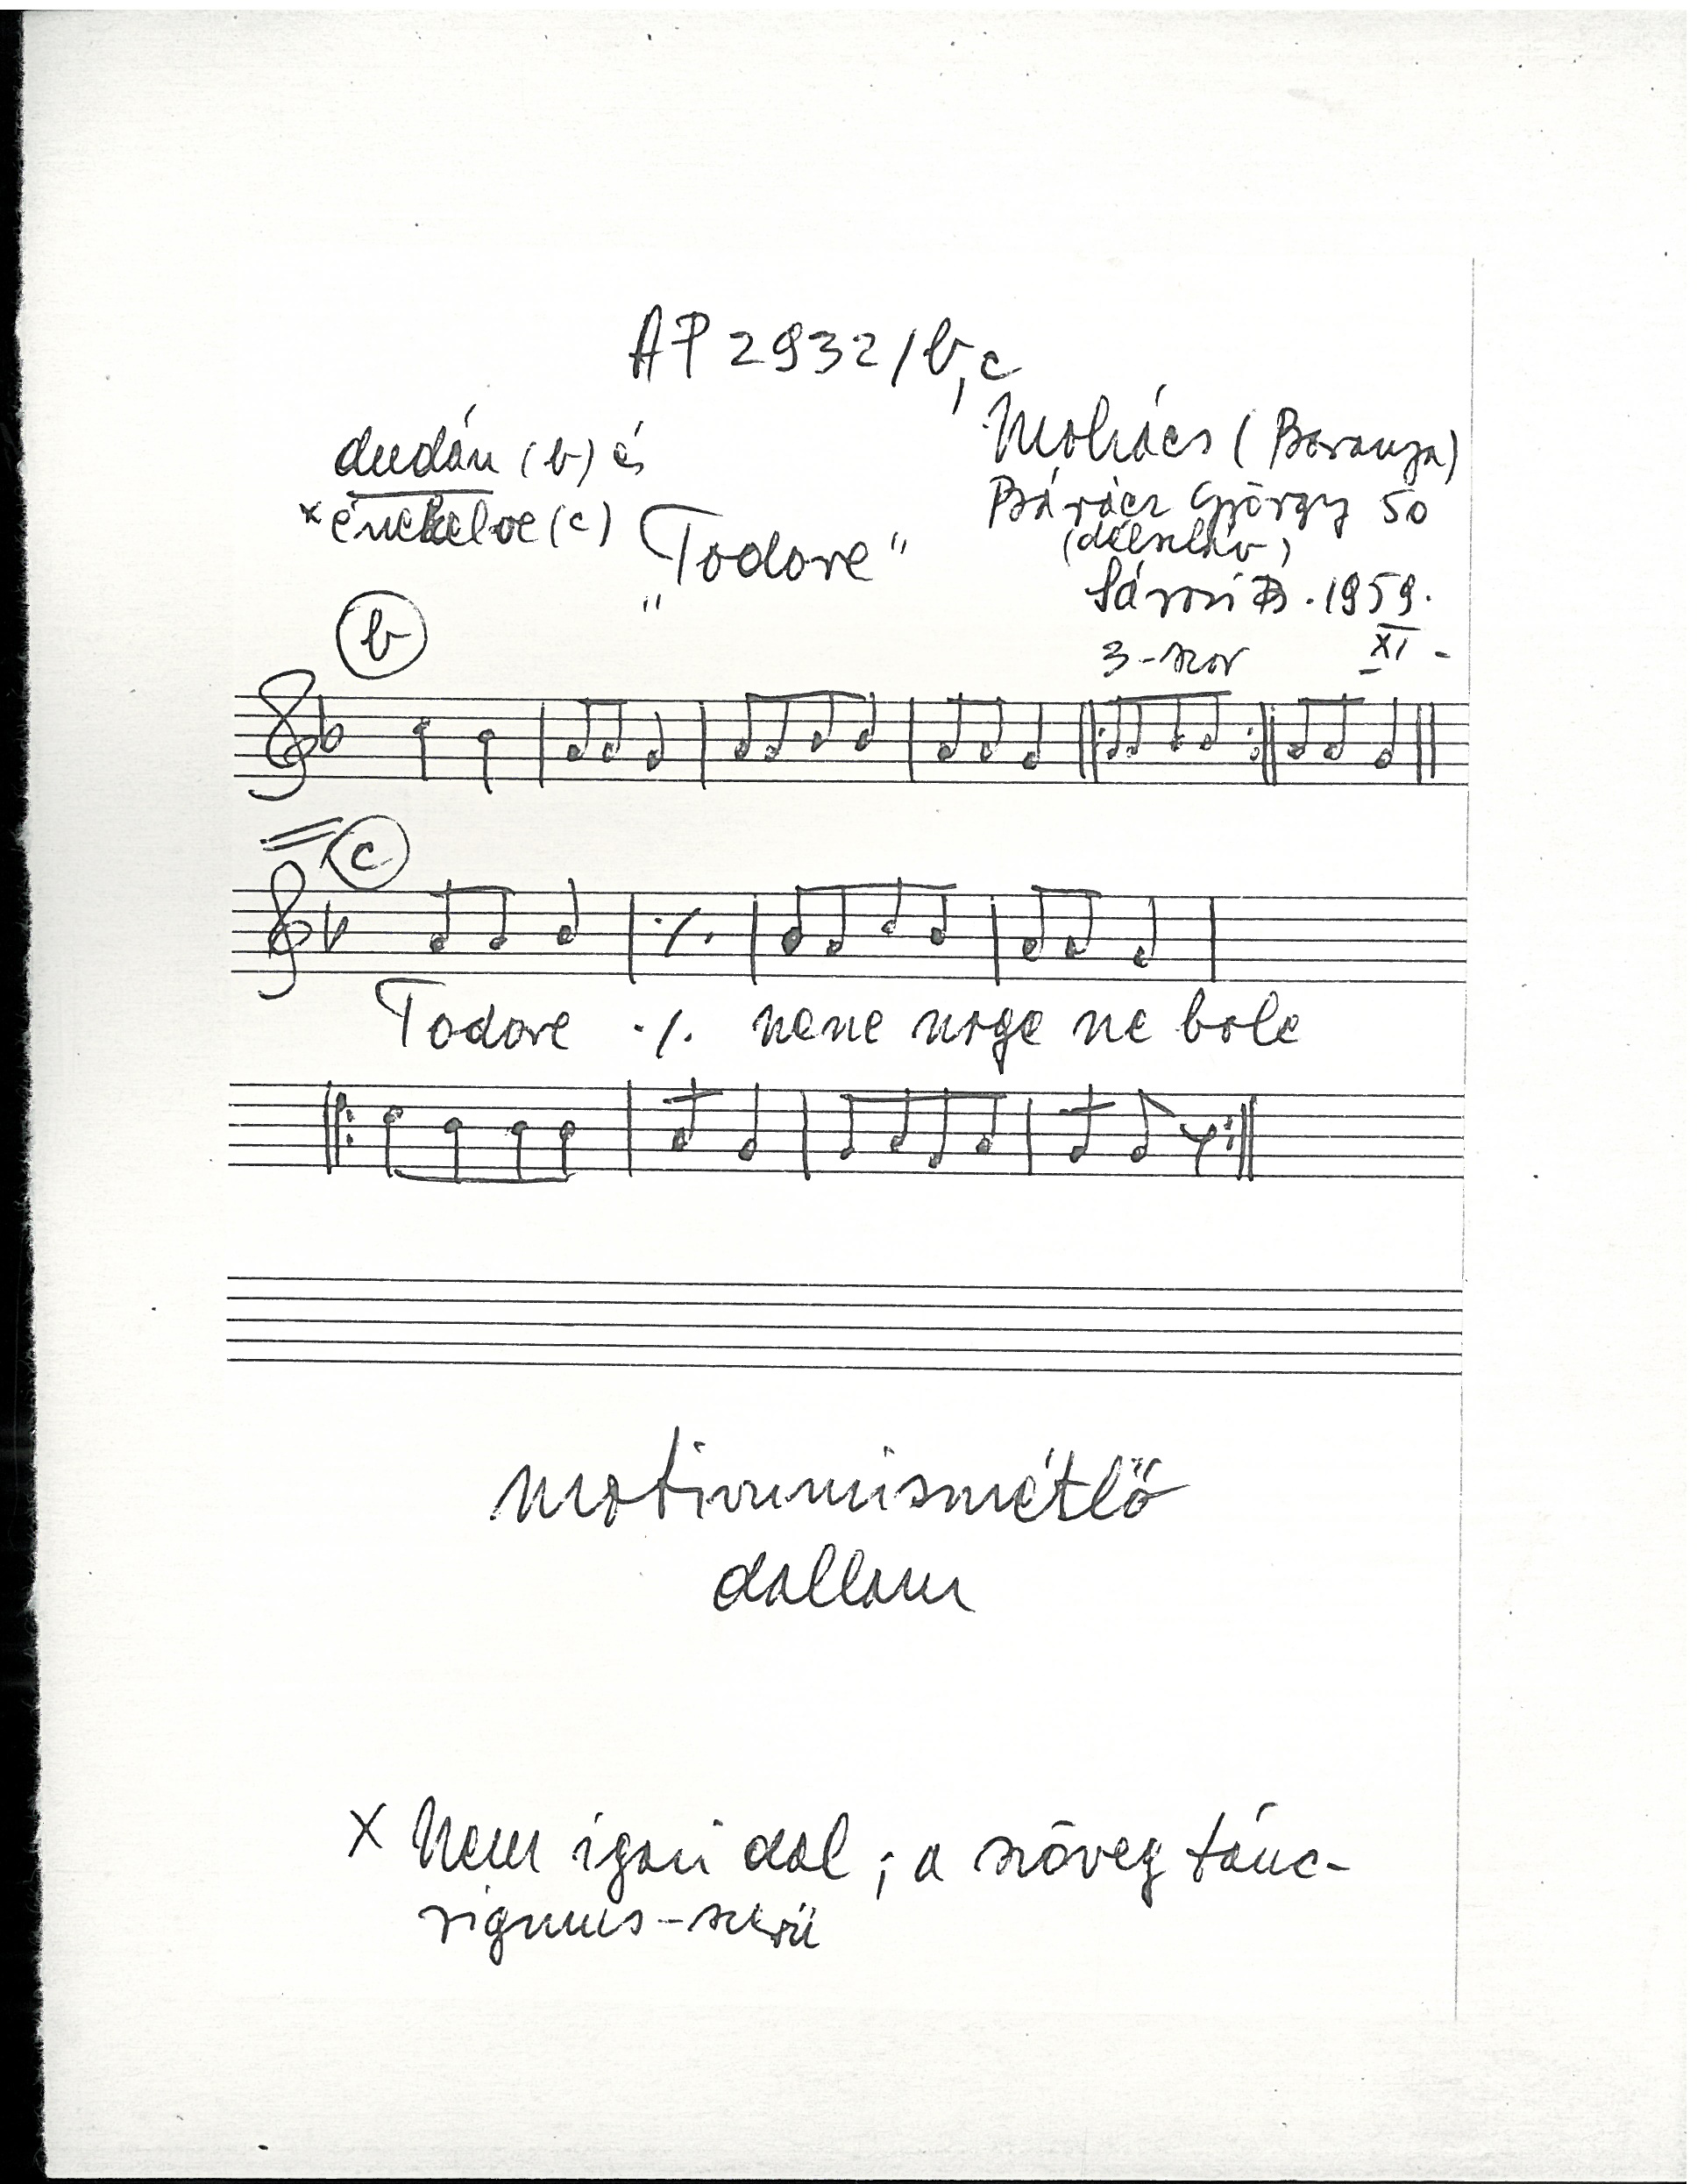 AP 2932/b,c
dudán (b) és
x énekelve (c)
Mohács (Baranya)
Bárácz György 50
(délszláv)
Sárosi B. 1959.
XI.
„Todore"
b
3-szor
c
Todore ./. nene noge ne bole
motivumismétlő
dallam
x Nem igazi dal; a szöveg tánc-
rigmus-szerü